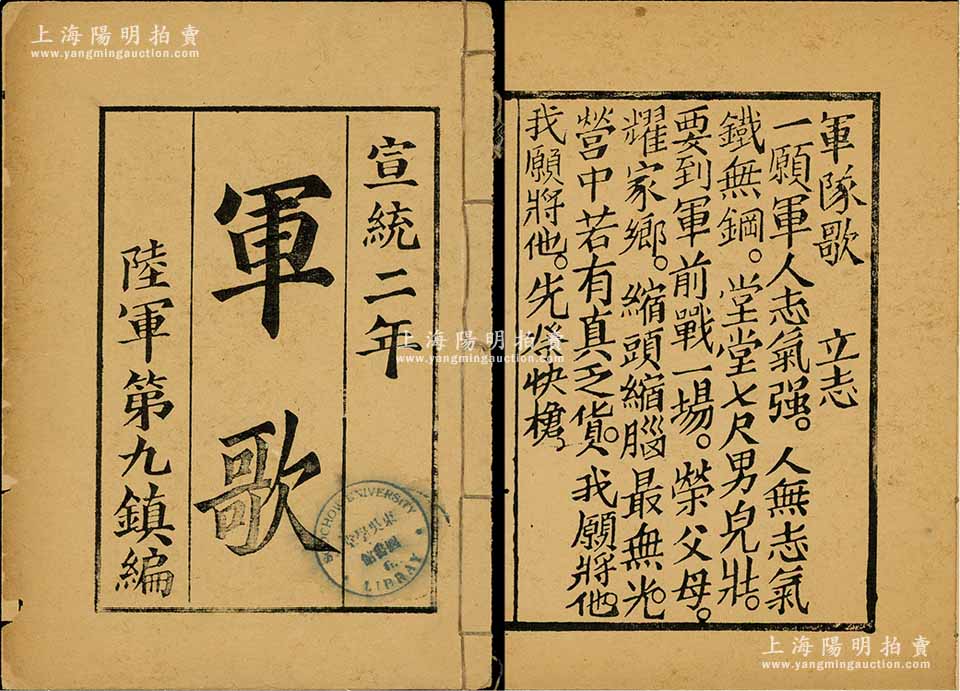 上海陽明拍賣
www.yangmingauction.com
宣統二年
軍歌
陸軍第九鎮編
SOOCHOW UNIVERSITY
LIBRARY
圖書館
上海陽明拍賣
www.yangmingauction.com
軍隊歌 立志
一願軍人志氣强。人無志氣
鐵無鋼。堂堂七尺男兒壯。
要到軍前戰一場。榮父母。
耀家鄉。縮頭縮腦最無光。
營中若有真乏貨。我願將他。
我願將他。先快槍。
上海陽明拍賣
www.yangmingauction.com